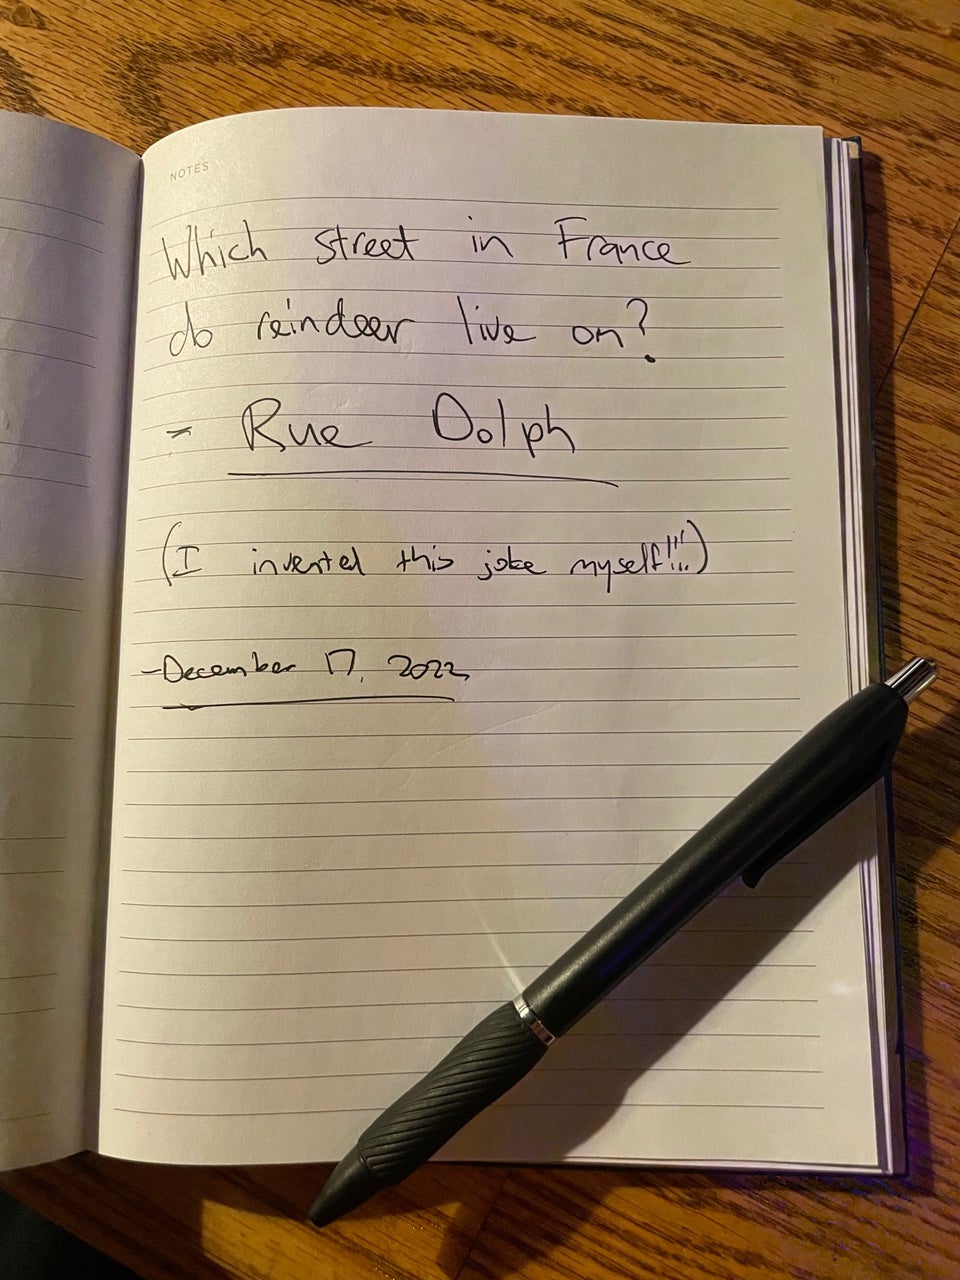 NOTES
Which street in France
do reindeer live on?
- Rue Dolph
(I invented this joke myself!!!)
-December 17, 2022